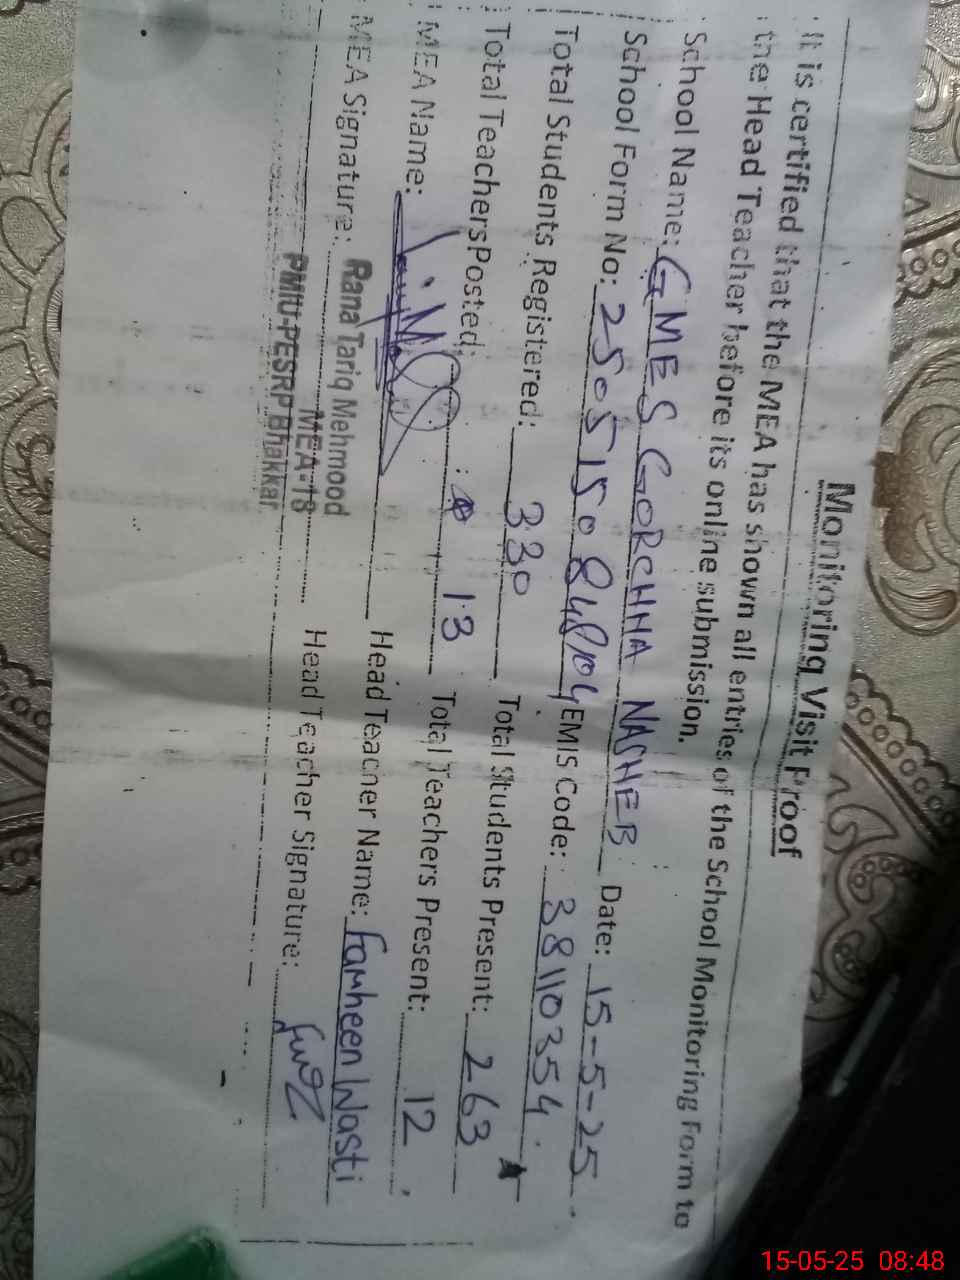 Monitoring Visit Proof
It is certified that the MEA has shown all entries of the School Monitoring Form to
the Head Teacher before its online submission.
School Name: GMES GORCHHA NASHEB Date: 15-5-25
School Form No: 2505150848104 EMIS Code: 38110354
Total Students Registered: 330 Total Students Present: 263
Total Teachers Posted: 13 Total Teachers Present: 12
MEA Name: Head Teacher Name: Farheen Wasti
MEA Signature: Head Teacher Signature:
Rana Tariq Mehmood
MEA-18
PMIU-PESRP Bhakkar
15-05-25 08:48